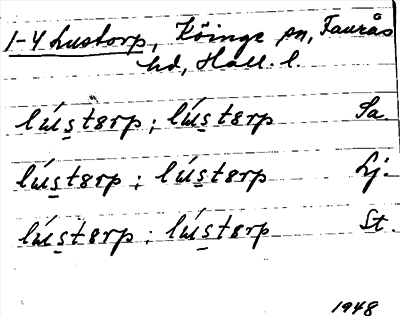 1-4 Lustorp, Köinge sn, Faurås
hd, Hall. l.
lús̲tɵrp ; lús̲tɵrp Sa.
lús̲tɵrp ; lús̲tɵrp Lj.
lús̲tɵrp ; lús̲tɵrp St.
1948